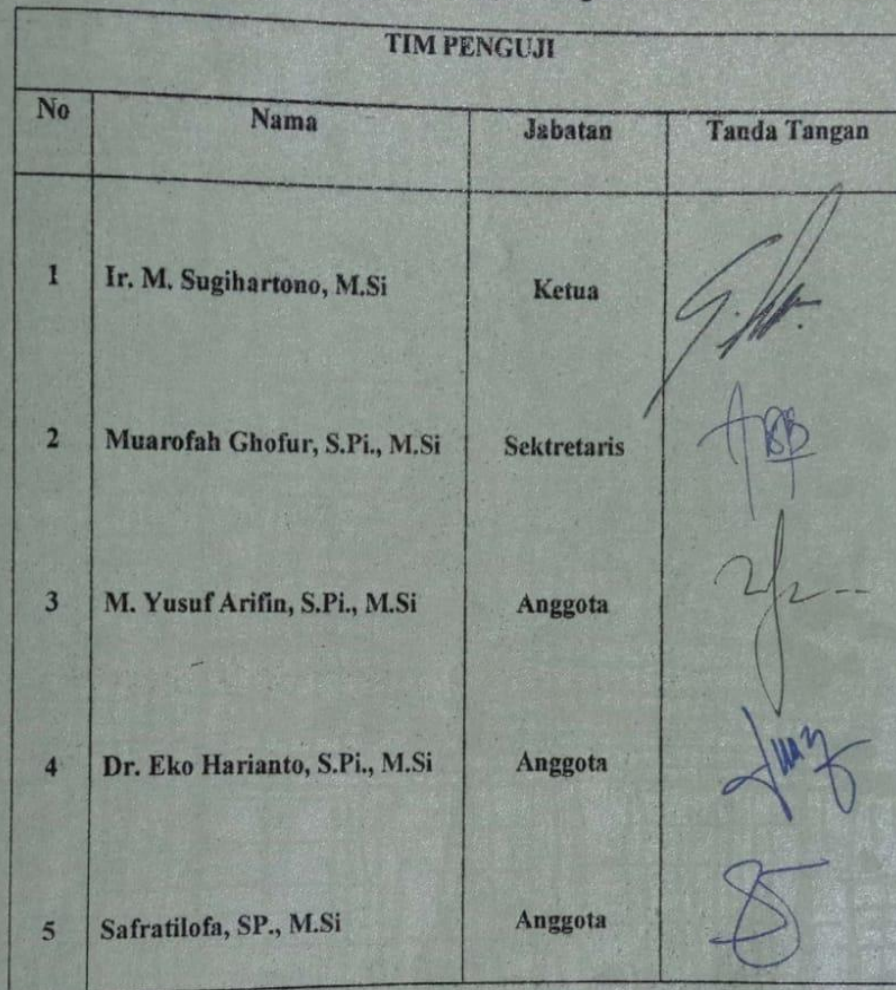 TIM PENGUJI
No Nama Jabatan Tanda Tangan
1 Ir. M. Sugihartono, M.Si Ketua
2 Muarofah Ghofur, S.Pi., M.Si Sektretaris
3 M. Yusuf Arifin, S.Pi., M.Si Anggota
4 Dr. Eko Harianto, S.Pi., M.Si Anggota
5 Safratilofa, SP., M.Si Anggota